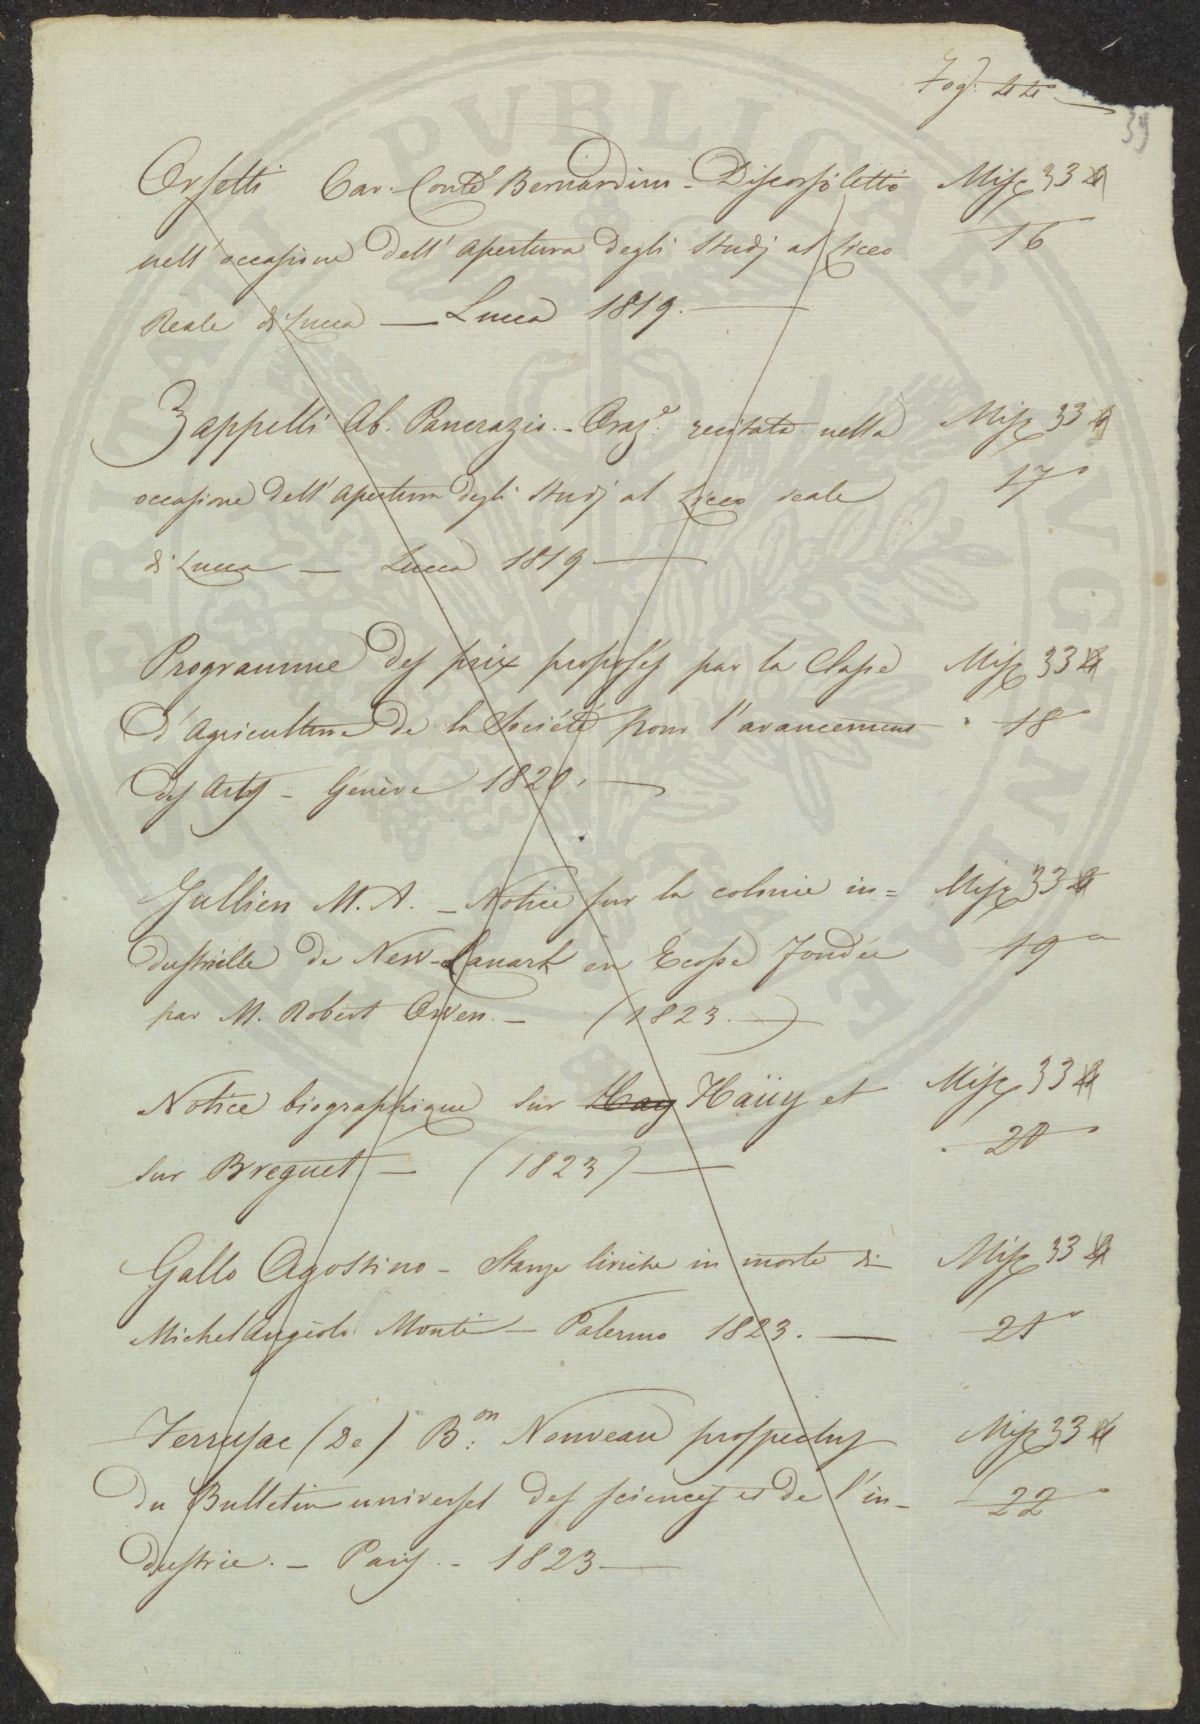 Fog. 44
39
Orsetti Car. Conte Bernardino - Discorso letto Misc 33
nell'occasione dell'apertura degli studj al Liceo 16
Reale di Lucca — Lucca 1819.
Zappelli Ab. Pancrazio. - Oraz.e recitata nella Misc 33
occasione dell'apertura degli studj al Liceo reale 17
di Lucca — Lucca 1819
Programme des prix proposés par la Classe Misc 33
d'Agriculture de la Société pour l'avancement 18
des Arts - Génève 1820.
Jullien M. A. - Notice sur la colonie in= Misc 33
dustrielle de New-Lanark en Ecosse fondée 19
par M. Robert Owen. - (1823.)
Notice biographique sur Hay Haüy et Misc 33
sur Breguet — (1823) 20
Gallo Agostino - Stanze liriche in morte di Misc 33
Michelangiolo Monti - Palermo 1823. 21
Ferussac (De) B.on Nouveau prospectus Misc 33
du Bulletin universel des sciences et de l'in- 22
dustrie. - Paris - 1823